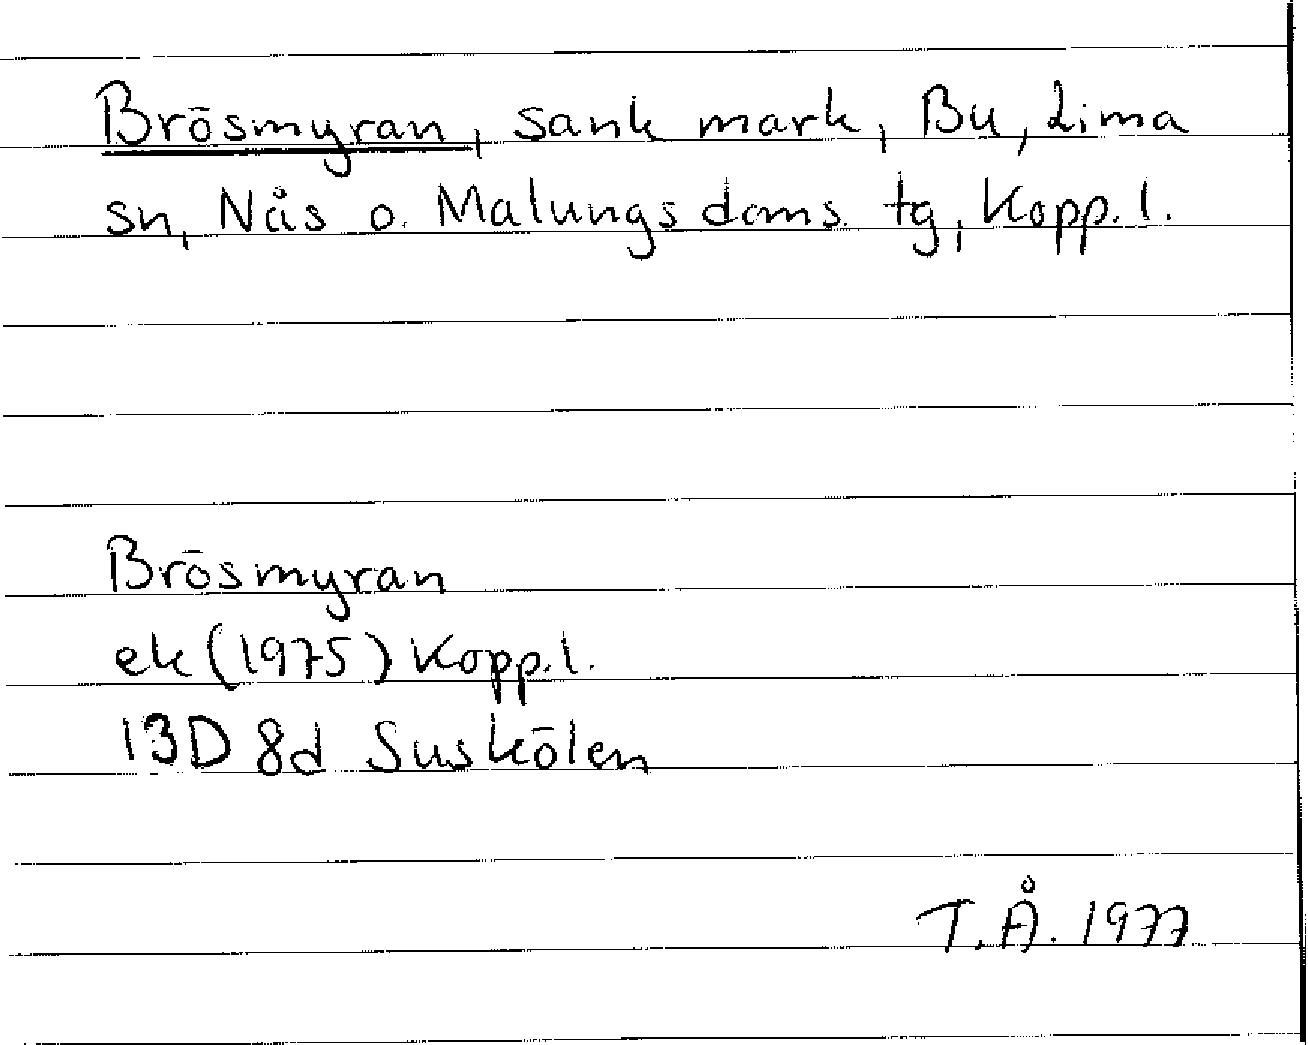 Brösmyran, sank mark, Bu, Lima
sn, Nås o. Malungs doms. tg, Kopp. l.
Brösmyran
ek (1975) Kopp. l.
13D 8d Suskölen
T.Å. 1977